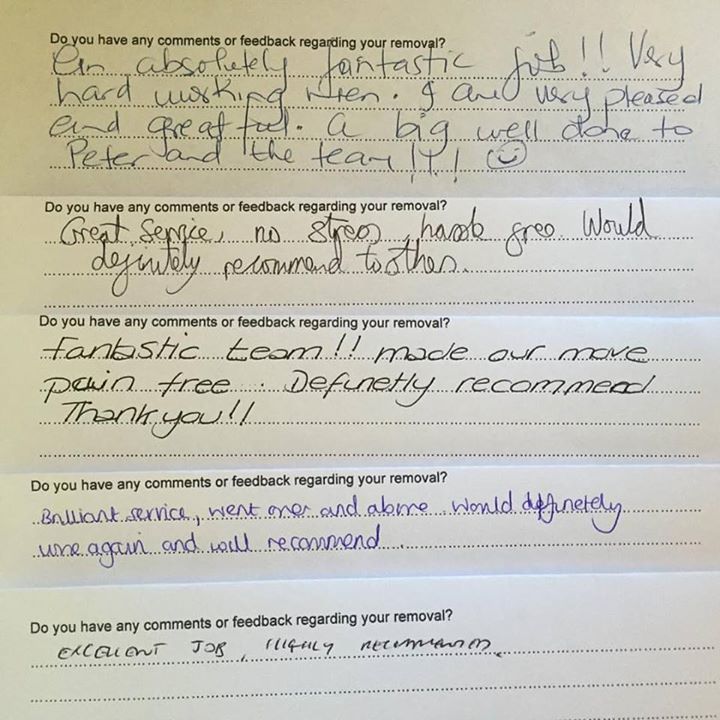 Do you have any comments or feedback regarding your removal?
An absolutely fantastic job!! Very
hard working men. I am very pleased
and greatful. A big well done to
Peter and the team!!! ☺
Do you have any comments or feedback regarding your removal?
Great Service, no stress, hassle free. Would
definitely recommend to others.
Do you have any comments or feedback regarding your removal?
fantastic team!! made our move
pain free. Definetly recommend
Thankyou!!
Do you have any comments or feedback regarding your removal?
Brilliant service, went over and above. Would deffinetely
use again and will recommend.
Do you have any comments or feedback regarding your removal?
EXCELLENT JOB, HIGHLY RECOMMENDED.